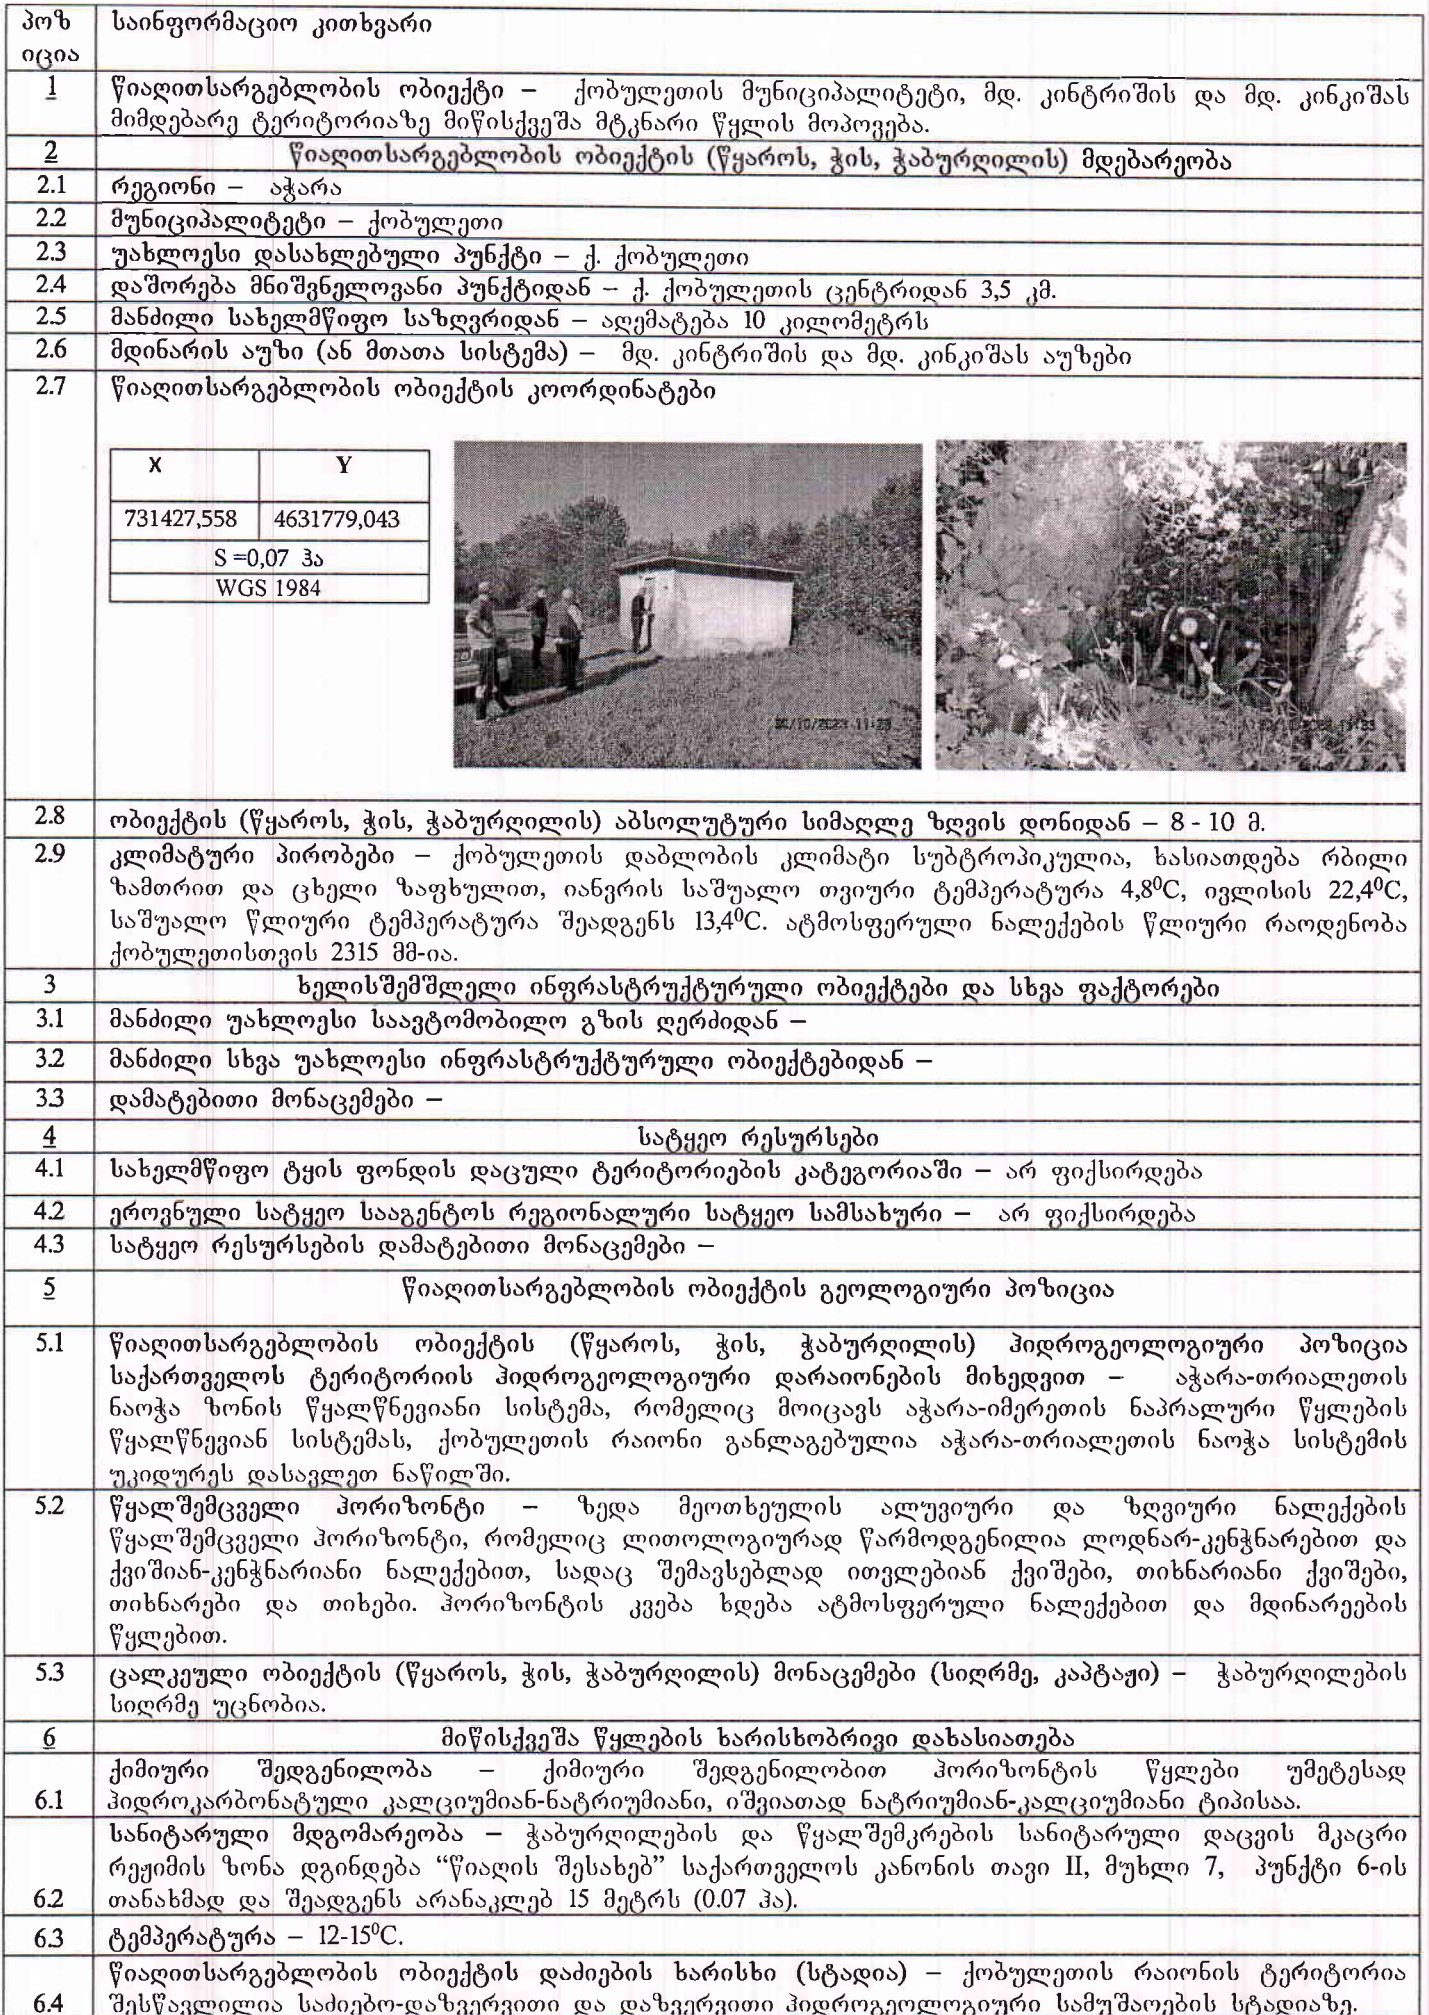 პოზ საინფორმაციო კითხვარი
იცია
1 წიაღითსარგებლობის ობიექტი – ქობულეთის მუნიციპალიტეტი, მდ. კინტრიშის და მდ. კინკიშას
მიმდებარე ტერიტორიაზე მიწისქვეშა მტკნარი წყლის მოპოვება.
2 წიაღითსარგებლობის ობიექტის (წყაროს, ჭის, ჭაბურღილის) მდებარეობა
2.1 რეგიონი – აჭარა
2.2 მუნიციპალიტეტი – ქობულეთი
2.3 უახლოესი დასახლებული პუნქტი – ქ. ქობულეთი
2.4 დაშორება მნიშვნელოვანი პუნქტიდან – ქ. ქობულეთის ცენტრიდან 3,5 კმ.
2.5 მანძილი სახელმწიფო საზღვრიდან – აღემატება 10 კილომეტრს
2.6 მდინარის აუზი (ან მთათა სისტემა) – მდ. კინტრიშის და მდ. კინკიშას აუზები
2.7 წიაღითსარგებლობის ობიექტის კოორდინატები
X Y
731427,558 4631779,043
S =0,07 ჰა
WGS 1984
2.8 ობიექტის (წყაროს, ჭის, ჭაბურღილის) აბსოლუტური სიმაღლე ზღვის დონიდან – 8 - 10 მ.
2.9 კლიმატური პირობები – ქობულეთის დაბლობის კლიმატი სუბტროპიკულია, ხასიათდება რბილი
ზამთრით და ცხელი ზაფხულით, იანვრის საშუალო თვიური ტემპერატურა 4,8⁰C, ივლისის 22,4⁰C,
საშუალო წლიური ტემპერატურა შეადგენს 13,4⁰C. ატმოსფერული ნალექების წლიური რაოდენობა
ქობულეთისთვის 2315 მმ-ია.
3 ხელისშემშლელი ინფრასტრუქტურული ობიექტები და სხვა ფაქტორები
3.1 მანძილი უახლოესი საავტომობილო გზის ღერძიდან –
3.2 მანძილი სხვა უახლოესი ინფრასტრუქტურული ობიექტებიდან –
3.3 დამატებითი მონაცემები –
4 სატყეო რესურსები
4.1 სახელმწიფო ტყის ფონდის დაცული ტერიტორიების კატეგორიაში – არ ფიქსირდება
4.2 ეროვნული სატყეო სააგენტოს რეგიონალური სატყეო სამსახური – არ ფიქსირდება
4.3 სატყეო რესურსების დამატებითი მონაცემები –
5 წიაღითსარგებლობის ობიექტის გეოლოგიური პოზიცია
5.1 წიაღითსარგებლობის ობიექტის (წყაროს, ჭის, ჭაბურღილის) ჰიდროგეოლოგიური პოზიცია
საქართველოს ტერიტორიის ჰიდროგეოლოგიური დარაიონების მიხედვით – აჭარა-თრიალეთის
ნაოჭა ზონის წყალწნევიანი სისტემა, რომელიც მოიცავს აჭარა-იმერეთის ნაპრალური წყლების
წყალწნევიან სისტემას, ქობულეთის რაიონი განლაგებულია აჭარა-თრიალეთის ნაოჭა სისტემის
უკიდურეს დასავლეთ ნაწილში.
5.2 წყალშემცველი ჰორიზონტი – ზედა მეოთხეულის ალუვიური და ზღვიური ნალექების
წყალშემცველი ჰორიზონტი, რომელიც ლითოლოგიურად წარმოდგენილია ლოდნარ-კენჭნარებით და
ქვიშიან-კენჭნარიანი ნალექებით, სადაც შემავსებლად ითვლებიან ქვიშები, თიხნარიანი ქვიშები,
თიხნარები და თიხები. ჰორიზონტის კვება ხდება ატმოსფერული ნალექებით და მდინარეების
წყლებით.
5.3 ცალკეული ობიექტის (წყაროს, ჭის, ჭაბურღილის) მონაცემები (სიღრმე, კაპტაჟი) – ჭაბურღილების
სიღრმე უცნობია.
6 მიწისქვეშა წყლების ხარისხობრივი დახასიათება
ქიმიური შედგენილობა – ქიმიური შედგენილობით ჰორიზონტის წყლები უმეტესად
6.1 ჰიდროკარბონატული კალციუმიან-ნატრიუმიანი, იშვიათად ნატრიუმიან-კალციუმიანი ტიპისაა.
სანიტარული მდგომარეობა – ჭაბურღილების და წყალშემკრების სანიტარული დაცვის მკაცრი
რეჟიმის ზონა დგინდება “წიაღის შესახებ” საქართველოს კანონის თავი II, მუხლი 7, პუნქტი 6-ის
6.2 თანახმად და შეადგენს არანაკლებ 15 მეტრს (0.07 ჰა).
6.3 ტემპერატურა – 12-15⁰C.
წიაღითსარგებლობის ობიექტის დაძიების ხარისხი (სტადია) – ქობულეთის რაიონის ტერიტორია
6.4 შესწავლილია საძიებო-დაზვერვითი და დაზვერვითი ჰიდროგეოლოგიური სამუშაოების სტადიაზე.